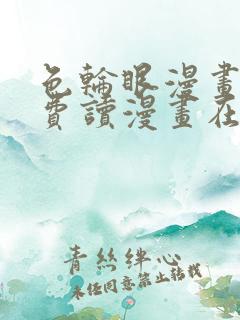 色輪眼漫畫
費讀漫畫在
青絲絆心
未经同意禁止转载